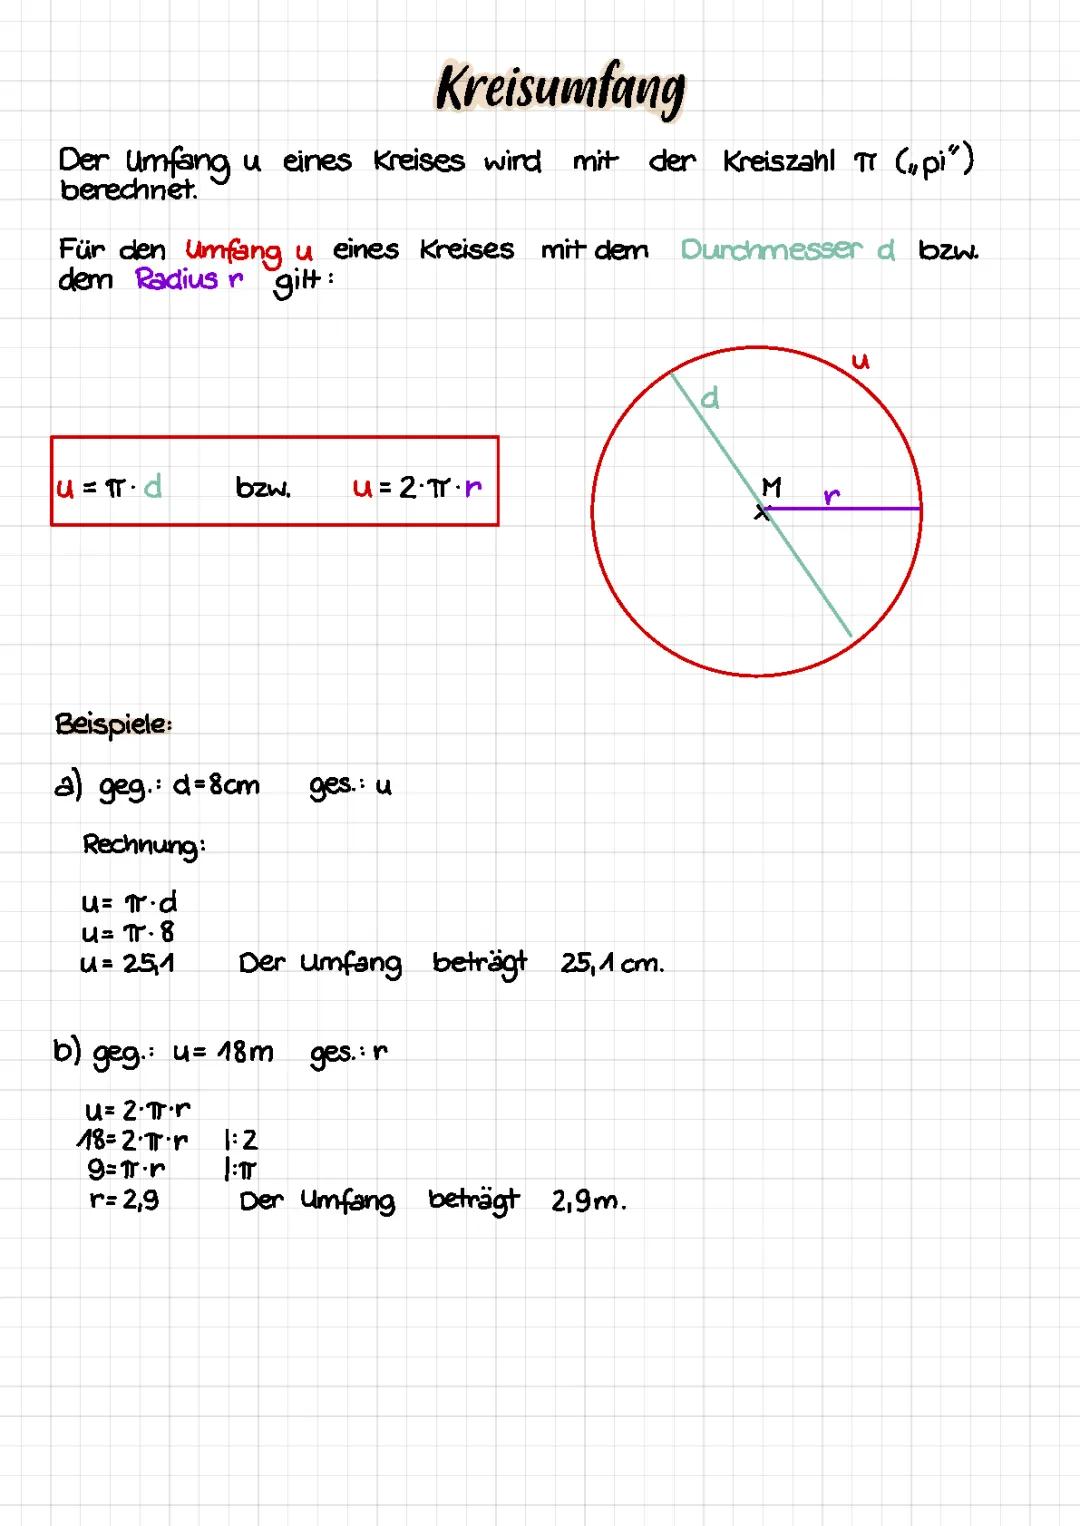 Kreisumfang
Der Umfang u eines Kreises wird mit der Kreiszahl π („pi“)
berechnet.
Für den Umfang u eines Kreises mit dem Durchmesser d bzw.
dem Radius r gilt:
u
d
u = π · d bzw. u = 2·π·r
M r
Beispiele:
a) geg.: d=8cm ges.: u
Rechnung:
u= π·d
u= π·8
u= 25,1 Der Umfang beträgt 25,1 cm.
b) geg.: u= 18m ges.: r
u= 2·π·r
18=2·π·r |:2
9=π·r |:π
r=2,9 Der Umfang beträgt 2,9m.